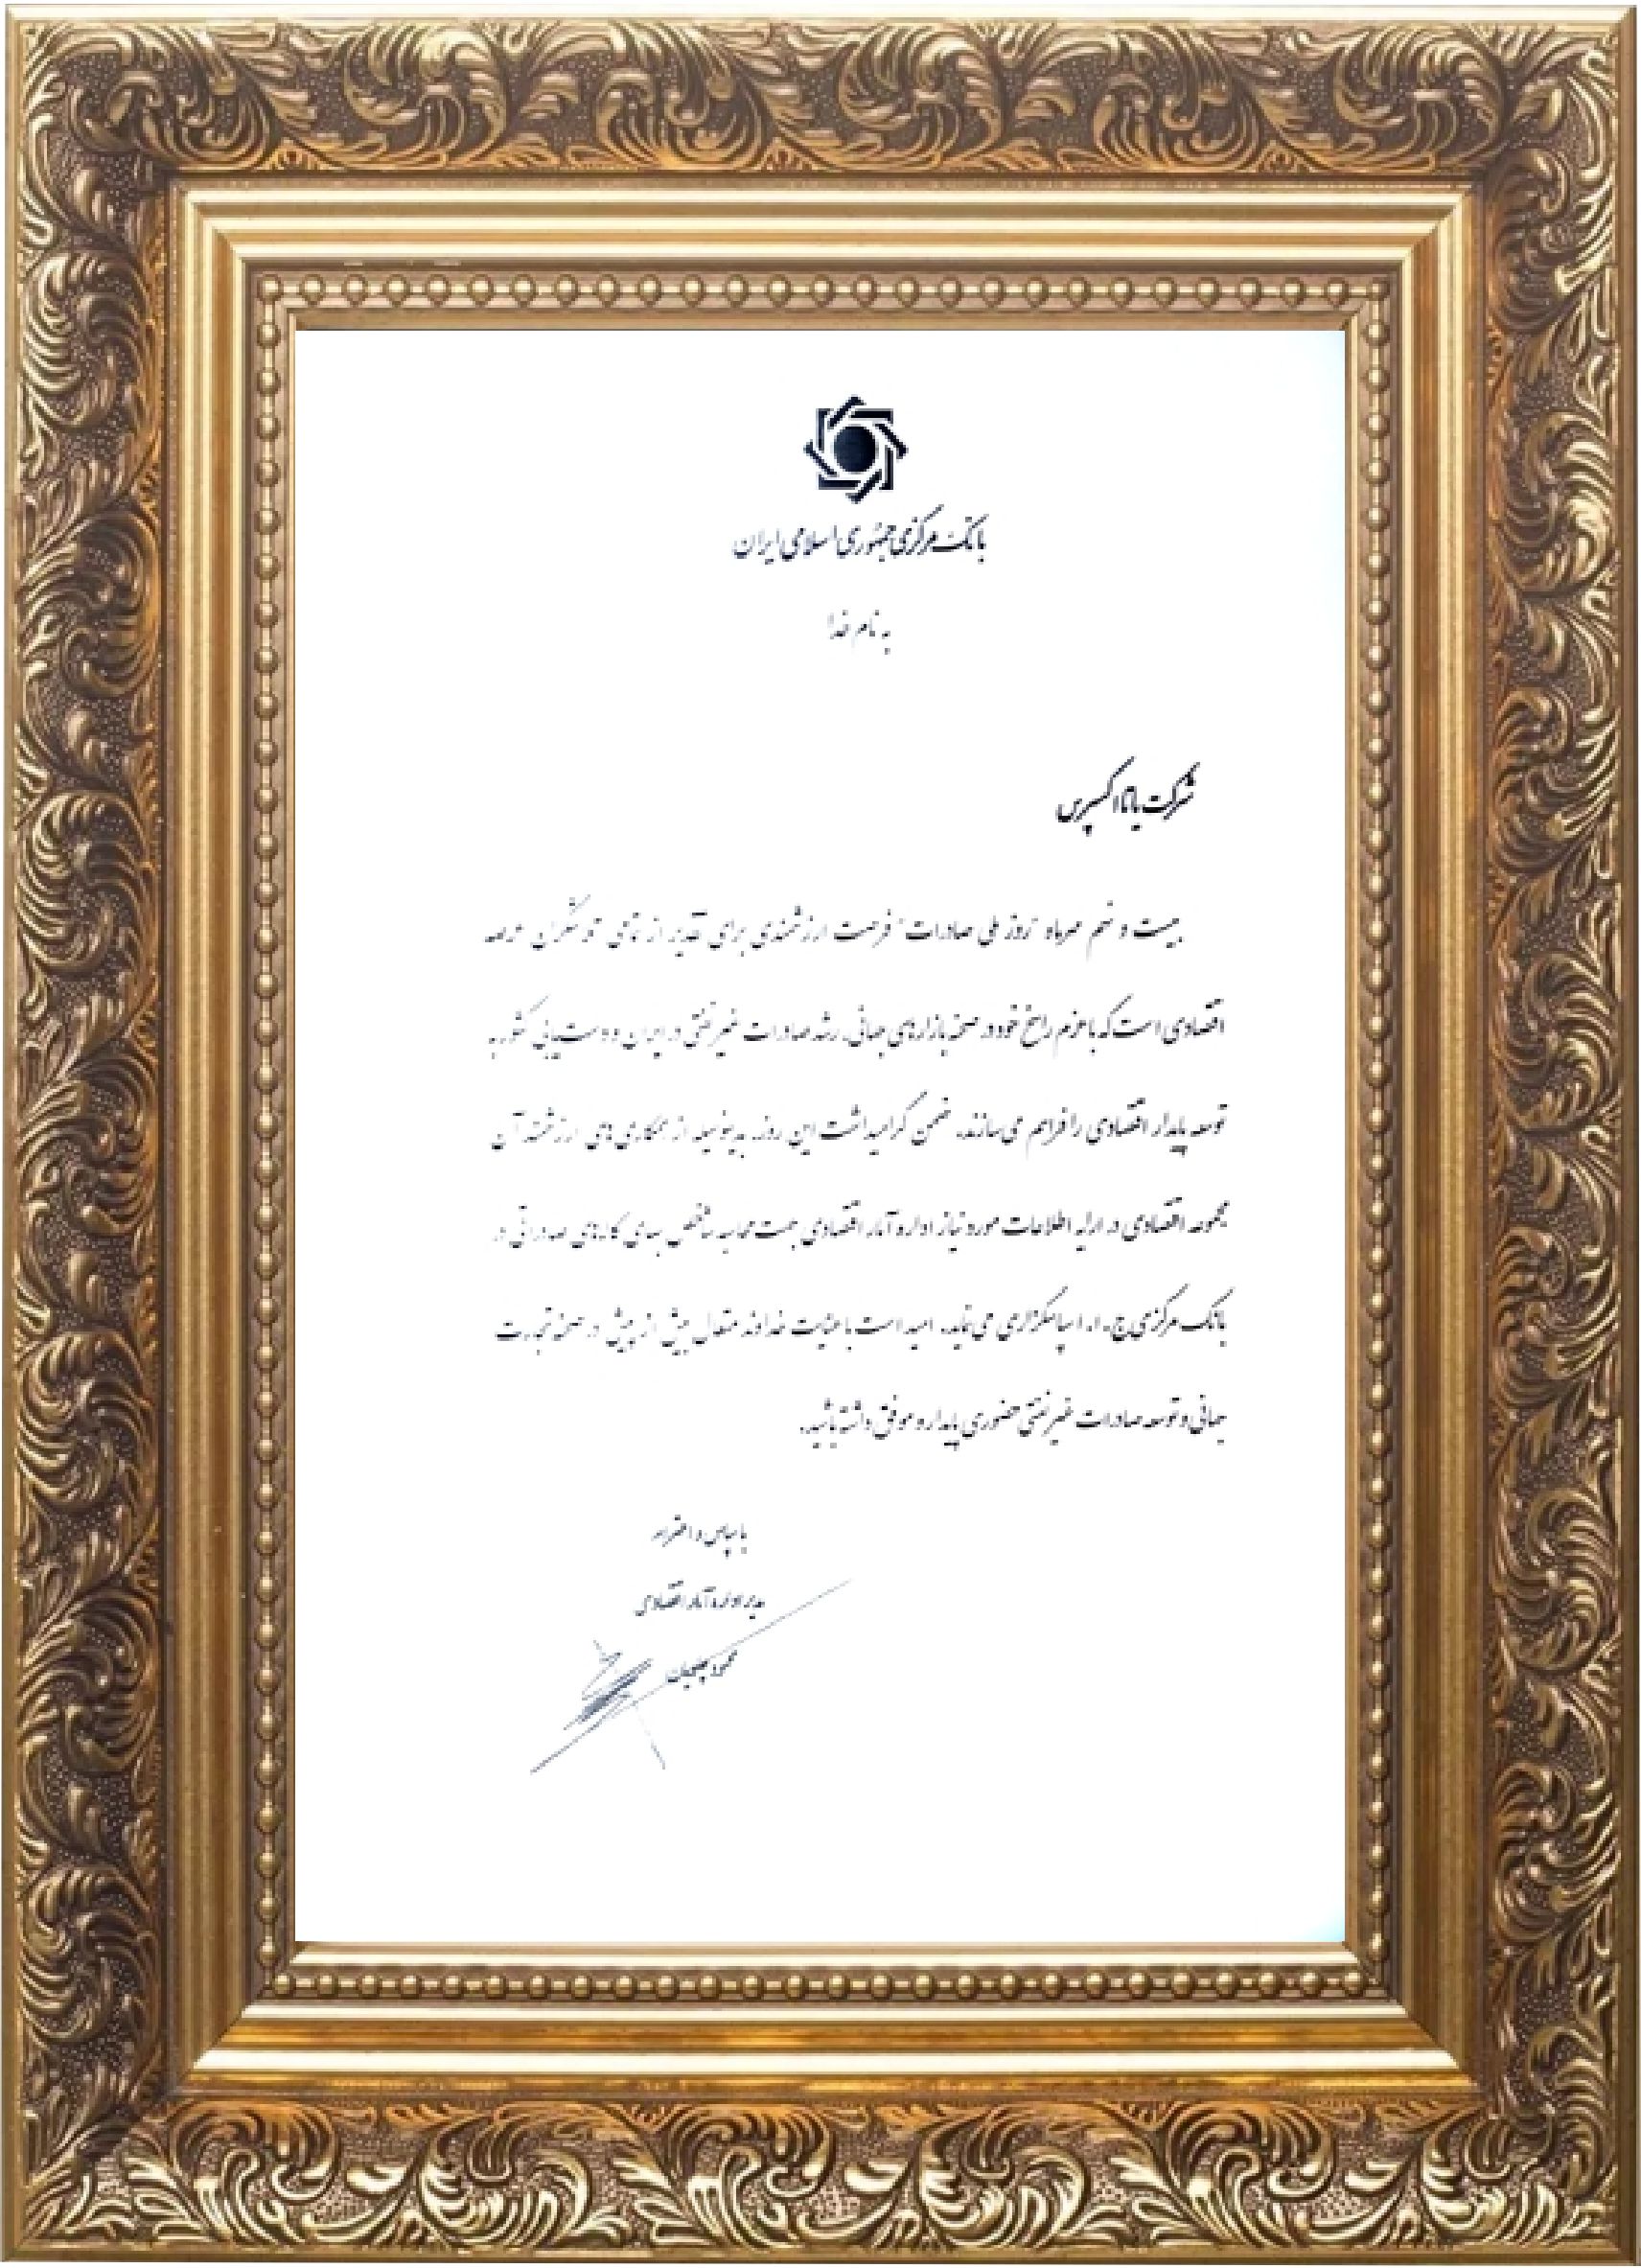 بانک مرکزی جمهوری اسلامی ایران
به نام خدا
شرکت یاتا اکسپرس
بیست و نهم مهرماه "روز ملی صادرات" فرصت ارزشمندی برای تقدیر از تمامی تلاشگران عرصه
اقتصادی است که با عزم راسخ خود در صحنه بازارهای جهانی، رشد صادرات غیرنفتی در ایران و دست‌یابی کشور به
توسعه پایدار اقتصادی را فراهم می‌سازند. ضمن گرامیداشت این روز، بدینوسیله از همکاری‌های ارزشمند آن
مجموعه اقتصادی در ارایه اطلاعات مورد نیاز اداره آمار اقتصادی جهت محاسبه شاخص بهای کالاهای صادراتی در
بانک مرکزی ج.ا.ا سپاسگزاری می‌نماید. امید است با عنایت خداوند متعال بیش از پیش در صحنه تجارت
جهانی و توسعه صادرات غیرنفتی حضوری پایدار و موفق داشته باشید.
با سپاس و احترام
مدیر اداره آمار اقتصادی
محمود